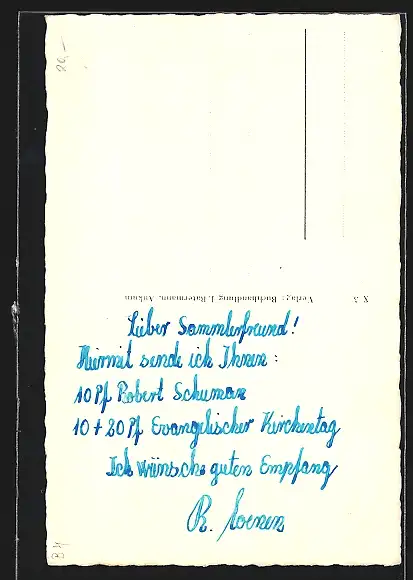 20,-
Verlag: Buchhandlung J. Ratermann, Ankum
X 3
Lieber Sammlerfreund!
Hiermit sende ich Ihnen:
10 Pf Robert Schuman
10 + 20 Pf Evangelischer Kirchentag
Ich wünsche guten Empfang
R.
B4